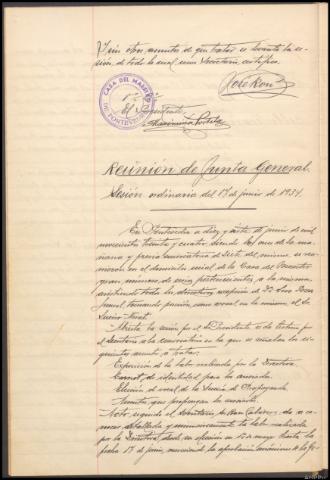 Y sin otros asuntos de que tratar se levanta la se-
sión, de todo lo cual como Secretario, certifico.
CASA DEL MAESTRO
DE PONTEVEDRA
Vº Bº
El Presidente
Reunión de Junta General.
Sesión ordinaria del 17 de junio de 1934.
En Pontevedra a diez y siete de junio de mil
novecientos treinta y cuatro, siendo las once de la ma-
ñana y previa convocatoria de siete del mismo, se re-
unieron en el domicilio social de la Casa del Maestro
gran número de socios pertenecientes a la misma
asistiendo toda la directiva a excepción de D. Luis
tomando posesión como vocal en la misma, el Sr.
Abierta la sesión por el Presidente se da lectura por
el Secretario a la convocatoria en la que se señalan los si-
guientes asuntos a tratar:
Exposición de la labor realizada por la Directiva.
Carnet de identidad para los asociados.
Elección de vocal de la Sección de Propaganda.
Asuntos que propongan los asociados.
Acto seguido el Secretario da a co-
nocer, detallada y minuciosamente la labor realizada
por la Directiva, desde su elección en de mayo hasta la
fecha 17 de junio, mereciendo la aprobación unánime de la